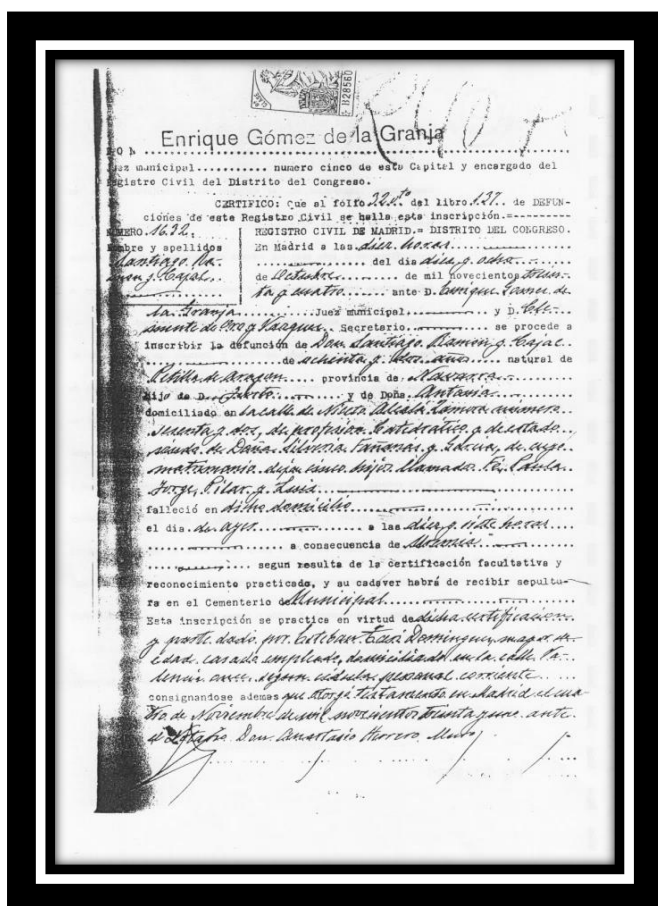 1128560
Enrique Gómez de la Granja
Juez municipal.......... numero cinco de esta Capital y encargado del
Registro Civil del Distrito del Congreso.
CERTIFICO: Que al folio 22 vto del libro 127.. de DEFUN-
ciones de este Registro Civil se halla esta inscripción.=--------
NUMERO. 1632. REGISTRO CIVIL DE MADRID.= DISTRITO DEL CONGRESO.
Nombre y apellidos En Madrid a las diez horas
Santiago Ra- del dia diez y ocho
mon y Cajal de Octubre de mil novecientos trein-
ta y cuatro ante D. Enrique Gomez de
la Granja Juez municipal y D. Cle-
mente de Oro y Vazquez Secretario se procede a
inscribir la defunción de Don Santiago Ramon y Cajal
de ochenta y dos años natural de
Petilla de Aragon provincia de Navarra
hijo de D. Justo y de Doña Antonia
domiciliado en la calle de Niceto Alcalá Zamora numero
sesenta y dos, de profesion Catedratico y de estado
viudo de Doña Silveria Fañanas y Garcia, de cuyo
matrimonio dejan cinco hijos llamados Fe, Paula
Jorge, Pilar y Luis
falleció en dicho domicilio
el dia de ayer a las diez y siete horas
a consecuencia de
segun resulta de la certificación facultativa y
reconocimiento practicado, y su cadaver habrá de recibir sepultu-
ra en el Cementerio de Municipal
Esta inscripción se practica en virtud de dicha certificacion
y parte dado por Esteban Dominguez mayor de
edad, casado, empleado, domiciliado en la calle Va-
lencia once, segun cédula personal corriente
consignandose ademas que otorgó testamento en Madrid el cua-
tro de Noviembre de mil novecientos treinta y uno ante
el Notario Don Anastasio Herrero Muro